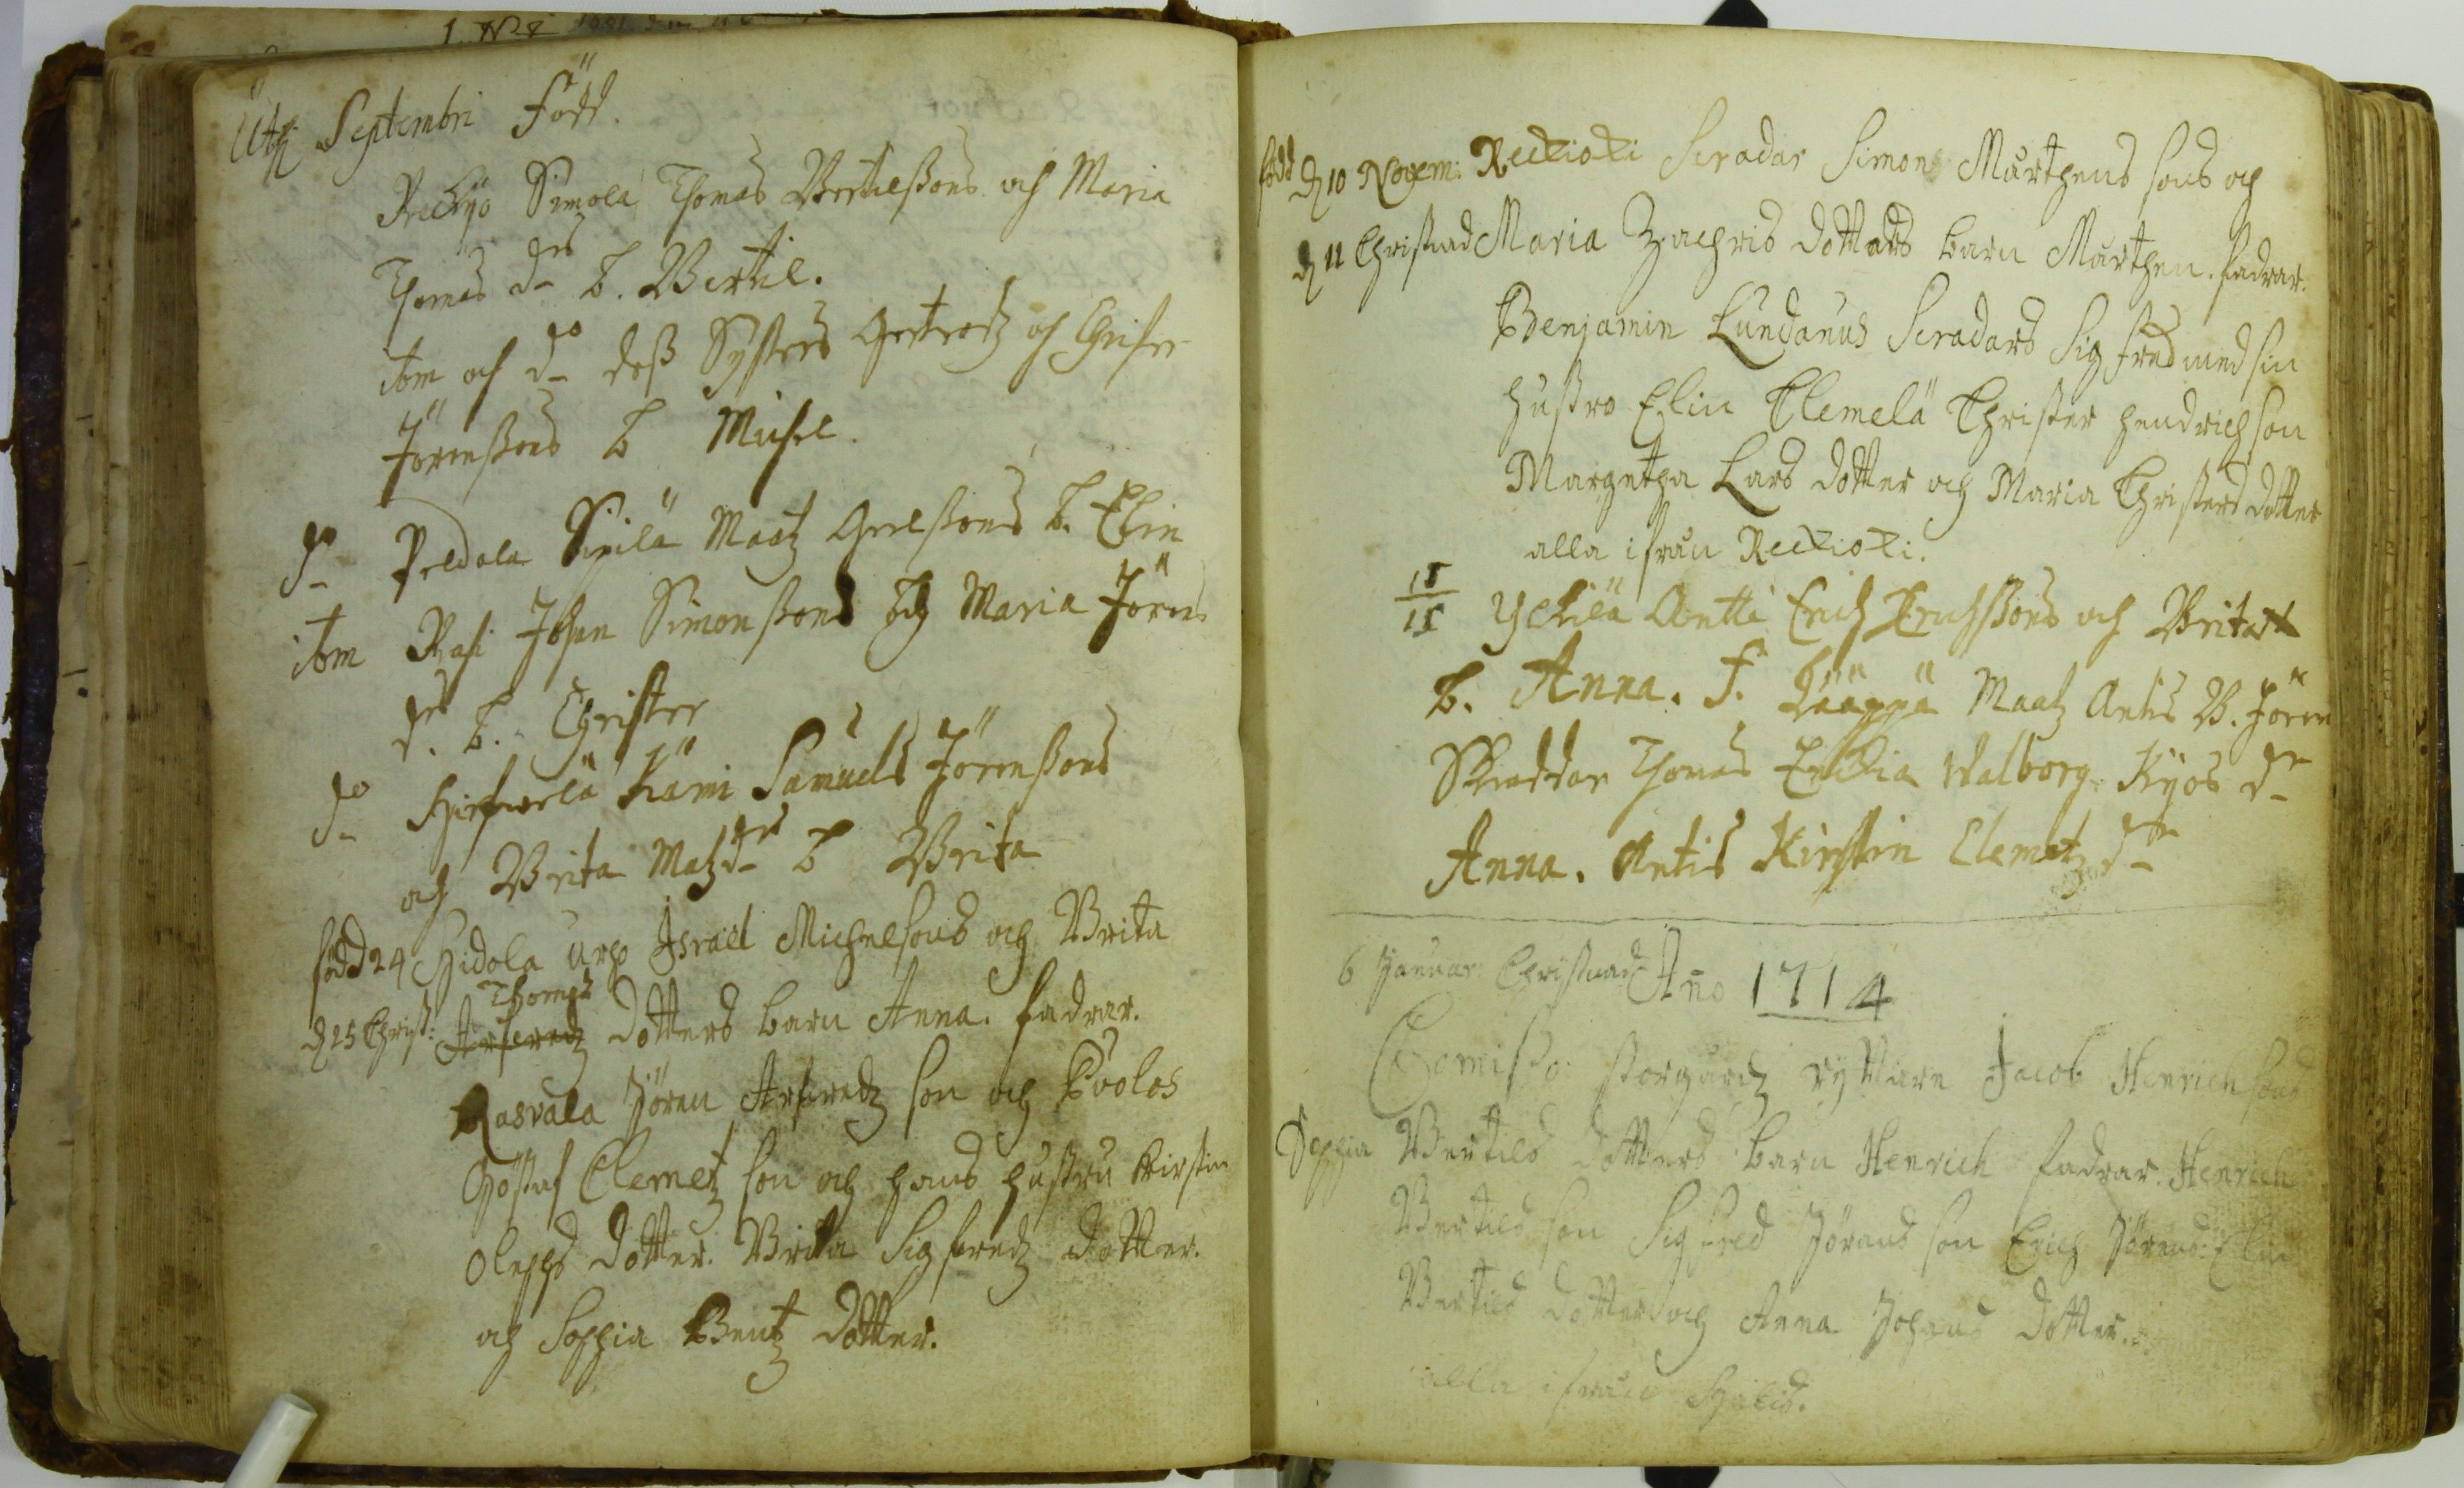 Uthj Septembri Född.
Reckyö Simola Thomas Bertilßons och Maria
Thomas drs b. Bertil.
itm och do deß Systers och Christer
Jörenßons b Michel.
do Peldola Sipilä Matz Grelßons b. Elin
itm Rasi Johan Simonßons och Maria Jörens
ds. b. Christer
do Kämi Samuels Jörenßons
och Brita Matzdrs b Brita
född 24 Hidola Urpo Israel Michelsons och Brita
Thomas
d 25 Christ: Arfwedz dotters barn Anna. fadrar.
Rasvala Jören Arfwedz son och Gvolas
Göstaf Clemetz son och hans hustru Kirstin
Olephs dotter. Brita Sigfredz dotter.
och Sophia Bentz dotter.
född d 10 Novem: Reckioki Scradar Simon Mårthens sons och
d 11 Christnad Maria Zachris dotters barn Mårthen. fadrar.
Benjamin Lundanus Scradars Sigfred med sin
hustro Elin Clemelä Christer Hendrichson
Margetha Lars dotter och Maria Christers dotter
alla ifrån Reckioki.
15
11 Yckilä Antti Erich Erichßons och Brita
b. Anna. F. Lääppä Matz Antis B. Jören
Skraddar Thomas Walborg. Kyös dr
Anna. Antis Kirstin Clemetz dr
6 Januar: Christnad Año 1714
Storgårdz ryttare Jacob Henrichsons
Sophia Bertils dotters barn Henrich fadrar. Henrich
Bertils son Sigfred Jörans son Erich Jörens: Elin
Bertils dotter och Anna Johans dotter.
alla ifrån